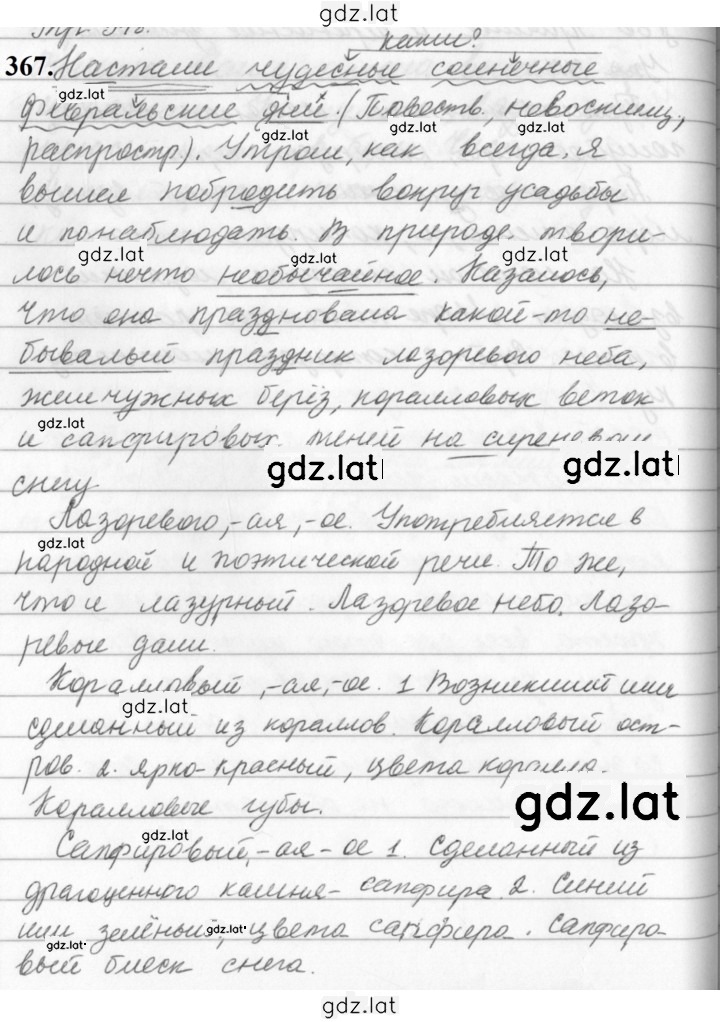 gdz.lat
какие?
367. Настали чудесные солнечные
февральские дни. (Повеств., невосклиц.,
gdz.lat
gdz.lat
распростр.). Утром, как всегда, я
вышел побродить вокруг усадьбы
gdz.lat
и понаблюдать. В природе твори-
gdz.lat
gdz.lat
лось нечто необычайное. Казалось,
что она праздновала какой-то не-
gdz.lat
бывалый праздник лазоревого неба,
жемчужных берёз, коралловых веток
gdz.lat
и сапфировых теней на сиреневом
gdz.lat
gdz.lat
снегу
Лазоревого, -ая, -ое. Употребляется в
gdz.lat
народной и поэтической речи. То же,
что и лазурный. Лазоревое небо. Лазо-
ревые дали.
Коралловый, -ая, -ое. 1 Возникший или
gdz.lat
сделанный из кораллов. Коралловый ост-
ров. 2. ярко-красный, цвета коралла.
Коралловые губы.
gdz.lat
gdz.lat
Сапфировый, -ая -ое 1. Сделанный из
драгоценного камня- сапфира. 2. Синий
или зелёный, цвета сапфира. Сапфиро-
gdz.lat
gdz.lat
вый блеск снега.
gdz.lat